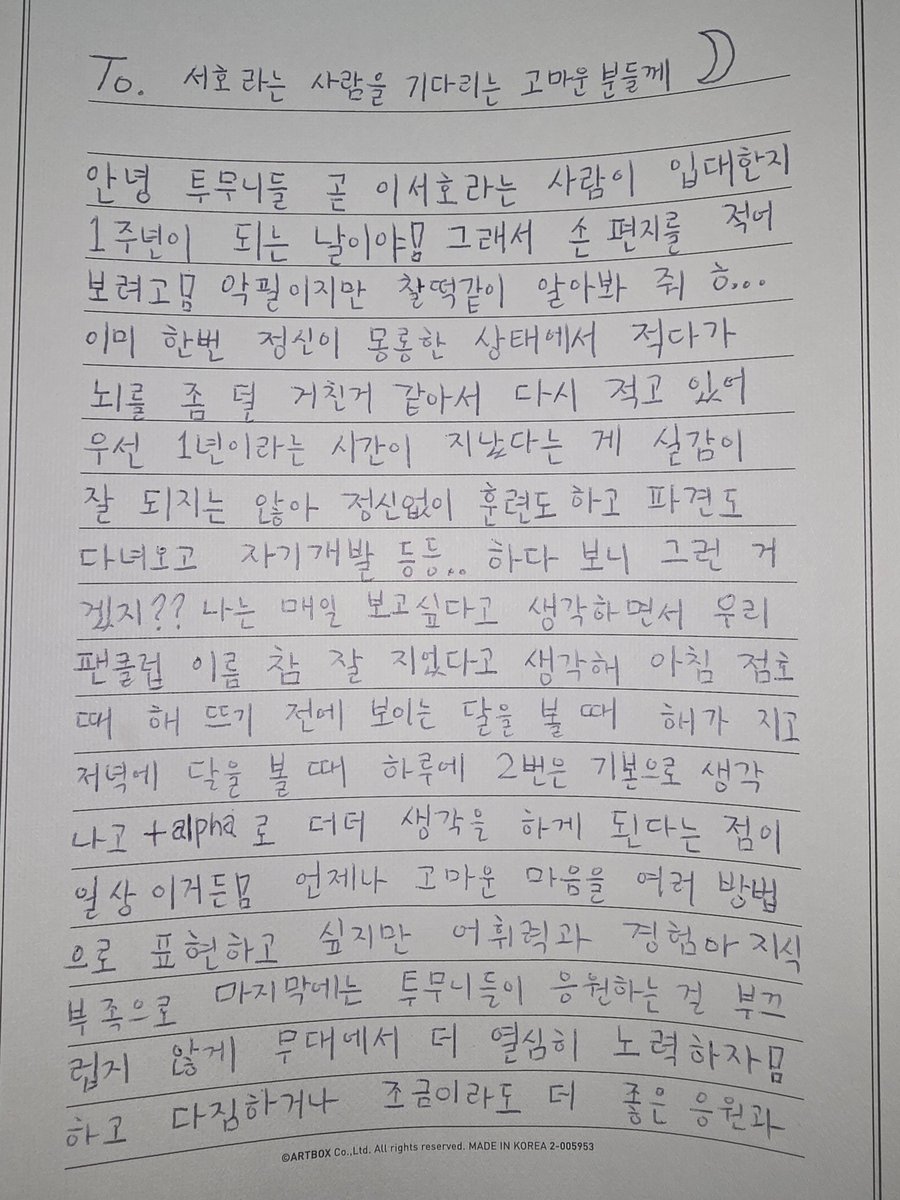 To. 서호라는 사람을 기다리는 고마운 분들께
안녕 투무니들 곧 이서호라는 사람이 입대한지
1주년이 되는 날이야묨 그래서 손 편지를 적어
보려고묨 악필이지만 찰떡같이 알아봐 줘 ㅎ...
이미 한번 정신이 몽롱한 상태에서 적다가
뇌를 좀 덜 거친거 같아서 다시 적고 있어
우선 1년이라는 시간이 지났다는 게 실감이
잘 되지는 않아 정신없이 훈련도 하고 파견도
다녀오고 자기개발 등등.. 하다 보니 그런 거
겠지?? 나는 매일 보고싶다고 생각하면서 우리
팬클럽 이름 참 잘 지었다고 생각해 아침 점호
때 해 뜨기 전에 보이는 달을 볼 때 해가 지고
저녁에 달을 볼 때 하루에 2번은 기본으로 생각
나고 +alpha로 더더 생각을 하게 된다는 점이
일상이거든묨 언제나 고마운 마음을 여러 방법
으로 표현하고 싶지만 어휘력과 경험마 지식
부족으로 마지막에는 투무니들이 응원하는 걸 부끄
럽지 않게 무대에서 더 열심히 노력하자묨
하고 다짐하거나 조금이라도 더 좋은 응원과
©ARTBOX Co.,Ltd. All rights reserved. MADE IN KOREA 2-005953